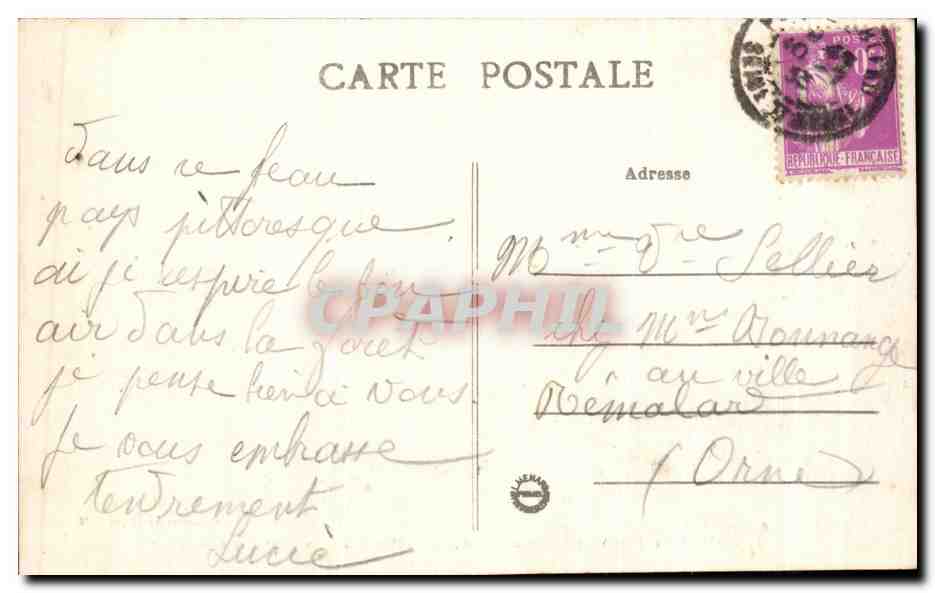 CARTE POSTALE
Dans ce beau
pays pittoresque
où je respire le bon
air dans la foret
je pense bien à vous
Je vous embrasse
tendrement
Lucie
Adresse
Mme Vve Sellier
chez Mr Donnange
au ville
Rémalard
(Orne)
POSTES
REPUBLIQUE-FRANÇAISE
CPAPHIL